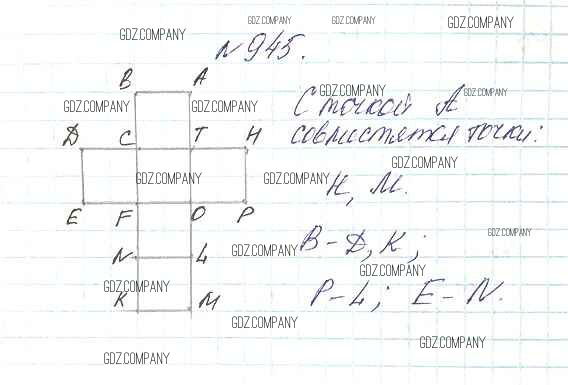 GDZ.COMPANY GDZ.COMPANY GDZ.COMPANY GDZ.COMPANY
№945.
B A
GDZ.COMPANY GDZ.COMPANY GDZ.COMPANY GDZ.COMPANY
С точкой А
совместятся точки:
D C T H
GDZ.COMPANY
GDZ.COMPANY GDZ.COMPANY
H, M.
E F O P
B-D, K;
GDZ.COMPANY
N L GDZ.COMPANY
GDZ.COMPANY
GDZ.COMPANY
P-L; E-N.
K M
GDZ.COMPANY
GDZ.COMPANY
GDZ.COMPANY